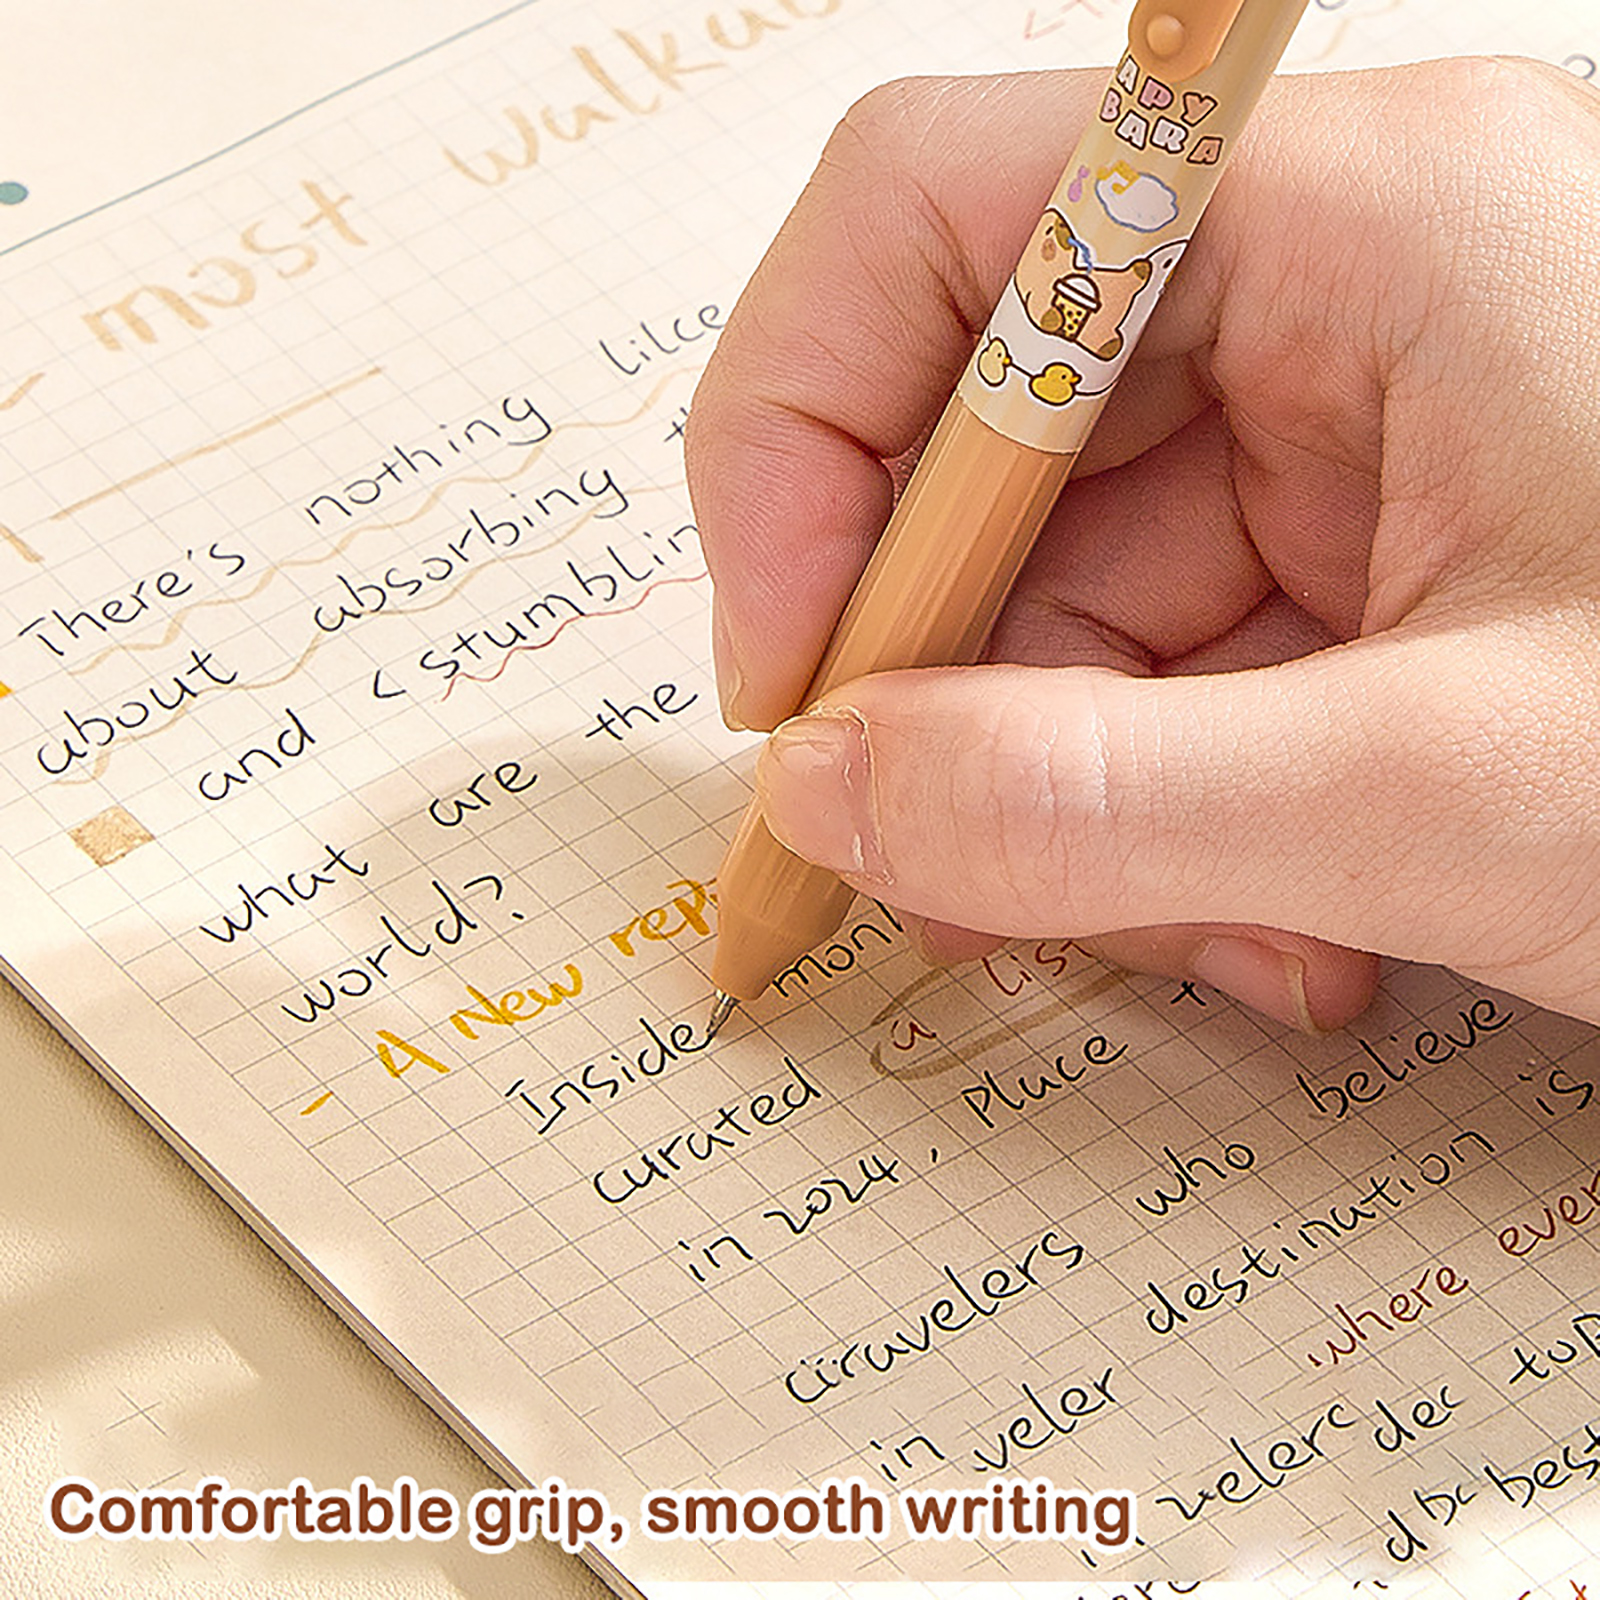 most
There's nothing like
about absorbing
and < stumblin
what are the
world?
- A New rep
Inside mon
curated a list
in 2024, Place
travelers who believe
in veler destination is
where ever
veler dec top
best
APY
BARA
Comfortable grip, smooth writing